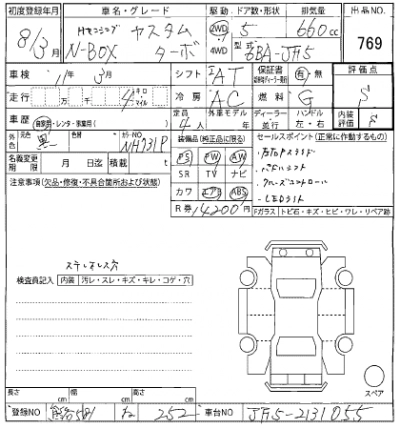 初度登録年月 車名・グレード 駆動 ドア数・形状 排気量 出品NO.
8/3月 N-BOX カスタム ターボ 2WD 4WD 5 660cc 769
型式 6BA-JF5
車検 11年3月 シフト AT 保証書 有・無 評価点
走行 万 千 4 キロ・マイル 冷房 AC 燃料 G S
車歴 自家用・レンタ・事業用( ) 定員 4人 外車モデル 年 ディーラー・並行 ハンドル 左・右 内装評価
外色 黒 色替 カラーNO NH731P 装備品(純正品に限る) セールスポイント(正常に作動するもの)
名義変更期限 月 日迄 積載 t PS PW AW
注意事項(欠品・修復・不具合箇所および状態) SR TV ナビ
カワ エアB ABS クルーズコントロール
R券 14200円 LEDライト
Fガラス トビ石・キズ・ヒビ・ワレ・リペア跡
ステンレス穴
検査員記入 内装 汚レ・スレ・キズ・キレ・コゲ・穴
スペア
長さ cm 幅 cm 高さ cm
登録NO 581 た 252 車台NO JF5-2131055